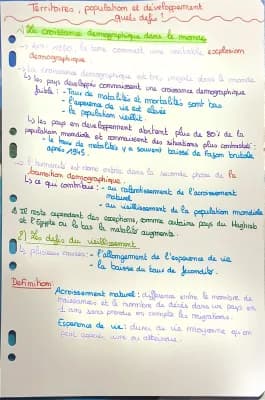 Territoires, population et développement
quels défis ?
1) La croissance démographique dans le monde
↳ depuis 1950, la terre connaît une véritable explosion
démographique
↳ La croissance démographique est très inégale dans le monde
↳ les pays développés connaissent une croissance démographique
faible : - Taux de natalités et mortalités sont bas
- l'espérance de vie est élevée
- la population vieillit
↳ les pays en développement abritent plus de 80% de la
population mondiale et connaissent des situations plus contrastés :
- le taux de natalités a souvent baissé de façon brutale
après 1945.
↳ L'humanité est donc entrée dans la seconde phase de la
transition démographique
↳ ce qui contribue : - au ralentissement de l'accroissement
naturel
- au vieillissement de la population mondiale
Il reste cependant des exceptions, comme certains pays du Maghreb
et l'Egypte ou le taux de natalité augmente.
2) Les défis du vieillissement
↳ plusieurs causes : - l'allongement de l'espérance de vie
- la baisse du taux de fécondité.
Définition
Accroissement naturel : différence entre le nombre de
naissances et le nombre de décès dans un pays en
1 ans sans prendre en compte les migrations.
Espérance de vie : durée de vie moyenne qu'on
peut espérer vivre ou atteindre.